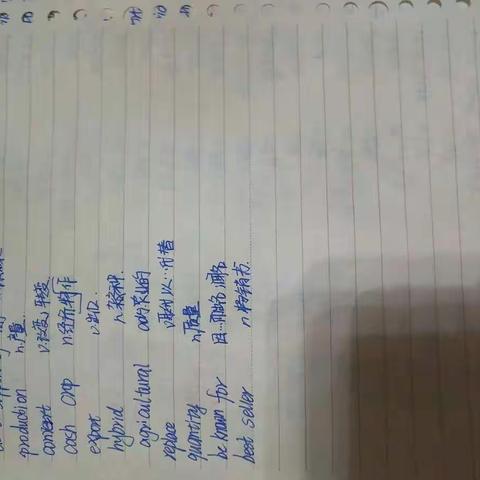 production n.产量
convert v.改变,转变
cash crop n.经济作物
export v.出口
hybrid n.杂种
agricultural 农业的
replace v.取代,以…代替
quantity n.质量
be known for 因…而出名,闻名
best seller n.畅销书